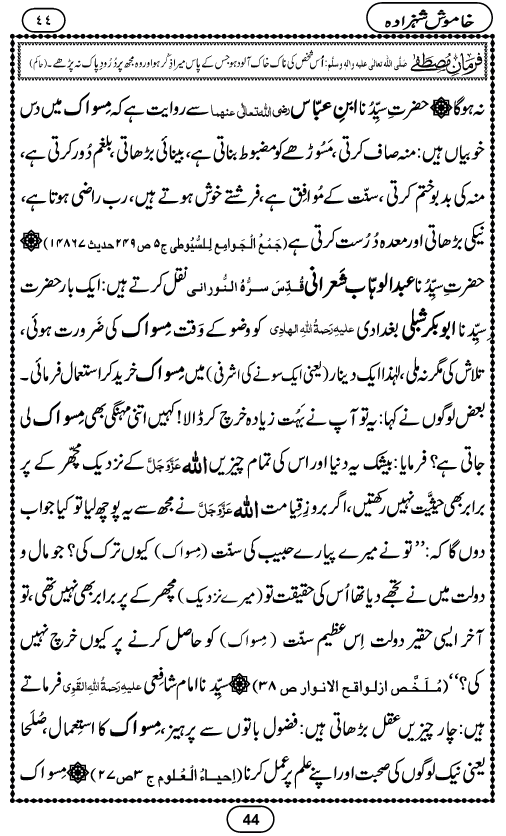 خاموش شہزادہ
٤٤
فرمانِ مصطفٰے صلی اللہ تعالٰی علیہ والہٖ وسلم: اُس شخص کی ناک خاک آلود ہو جس کے پاس میرا ذِکر ہو اور وہ مجھ پر دُرُودِ پاک نہ پڑھے۔ (حاکم)
نہ ہوگا ۞ حضرتِ سیِّدُنا ابنِ عبّاس رضی اللہ تعالٰی عنہما سے روایت ہے کہ مِسواک میں دس
خوبیاں ہیں: منہ صاف کرتی، مَسُوڑھے کو مضبوط بناتی ہے، بینائی بڑھاتی، بلغم دُور کرتی ہے،
منہ کی بدبو ختم کرتی، سنّت کے مُوافِق ہے، فرشتے خوش ہوتے ہیں، رب راضی ہوتا ہے،
نیکی بڑھاتی اور معدہ دُرُست کرتی ہے (جَمْعُ الْجَوامِع لِلسُّیُوطی ج۵ ص۲۴۹ حدیث ۱۴۸۶۷) ۞
حضرتِ سیِّدُنا عبدالوہّاب شَعرانی قُدِّسَ سِرُّہُ النُّورانی نقل کرتے ہیں: ایک بار حضرتِ
سیِّدُنا ابوبکر شبلی بغدادی علیہ رحمۃُ اللہِ الھادِی کو وضو کے وَقت مِسواک کی ضَرورت ہوئی،
تلاش کی مگر نہ ملی، لہٰذا ایک دینار (یعنی ایک سونے کی اشرفی) میں مِسواک خرید کر استعمال فرمائی۔
بعض لوگوں نے کہا: یہ تو آپ نے بَہُت زیادہ خرچ کر ڈالا! کہیں اتنی مہنگی بھی مِسواک لی
جاتی ہے؟ فرمایا: بیشک یہ دنیا اور اس کی تمام چیزیں اللہ عَزَّوَجَلَّ کے نزدیک مچھّر کے پر
برابر بھی حیثیَّت نہیں رکھتیں، اگر بروزِ قِیامت اللہ عَزَّوَجَلَّ نے مجھ سے یہ پوچھ لیا تو کیا جواب
دوں گا کہ: ’’تو نے میرے پیارے حبیب کی سنّت (مِسواک) کیوں ترک کی؟ جو مال و
دولت میں نے تجھے دیا تھا اُس کی حقیقت تو (میرے نزدیک) مچھر کے پر برابر بھی نہیں تھی، تو
آخر ایسی حقیر دولت اِس عظیم سنّت (مِسواک) کو حاصل کرنے پر کیوں خرچ نہیں
کی؟‘‘ (مُلَخَّص از لواقح الانوار ص ۳۸) ۞ سیِّدُنا امام شافعی علیہ رحمۃُ اللہِ القوی فرماتے
ہیں: چار چیزیں عقل بڑھاتی ہیں: فضول باتوں سے پرہیز، مِسواک کا استِعمال، صُلَحا
یعنی نیک لوگوں کی صحبت اور اپنے علم پر عمل کرنا (اِحیاءُ الْعُلوم ج ۳ ص۲۷) ۞ مِسواک
44